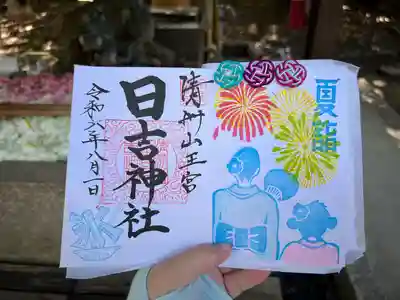 夏詣
清洲山王宮
日吉神社
令和六年八月一日
氷